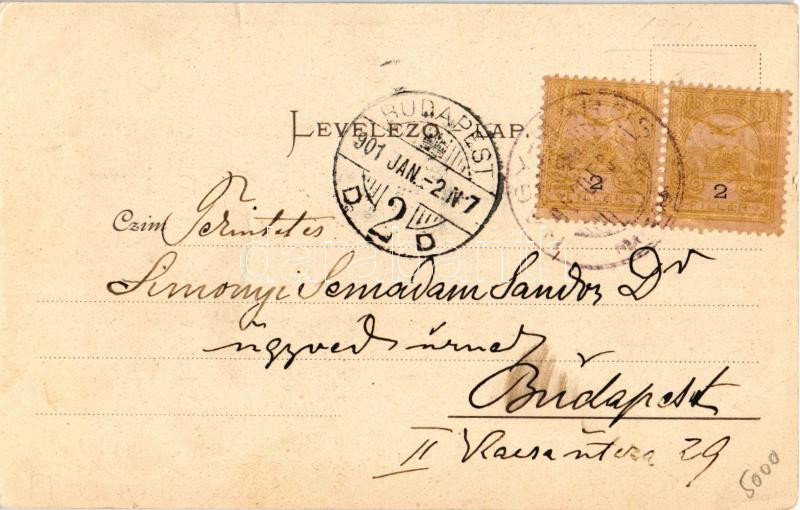 LEVELEZŐ-LAP.
BUDAPEST
901 JAN.-2 N7
D 2 D
2
2
Czim Tekintetes
Simonyi Semadam Sandor Dr
ügyved úrnak
Budapest
II Kacsa útcza 29
5000